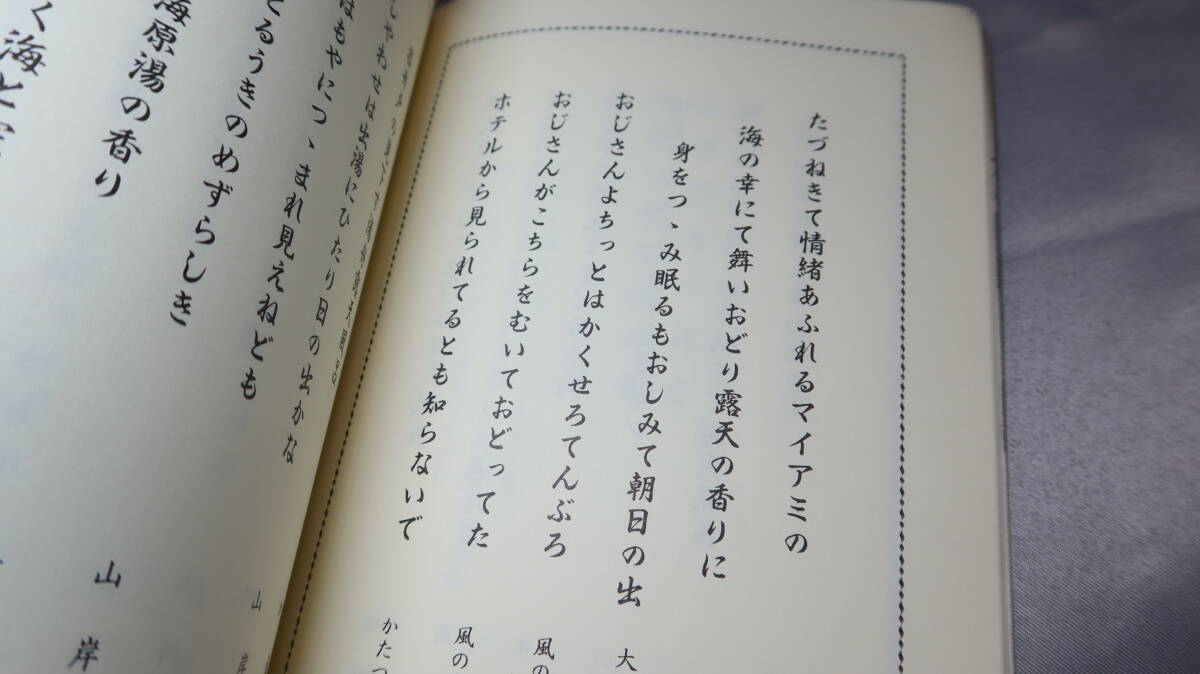 たづねきて情緒あふれるマイアミの
海の幸にて舞いおどり露天の香りに
身をつゝみ眠るもおしみて朝日の出
大
おじさんよちっとはかくせろてんぶろ
風の
おじさんがこちらをむいておどってた
風の
ホテルから見られてるとも知らないで
かたつ
しやわせは出湯にひたり日の出かな
山岸
はもやにつゝまれ見えねども
山岸
てるうきのめずらしき
海原湯の香り
く海と